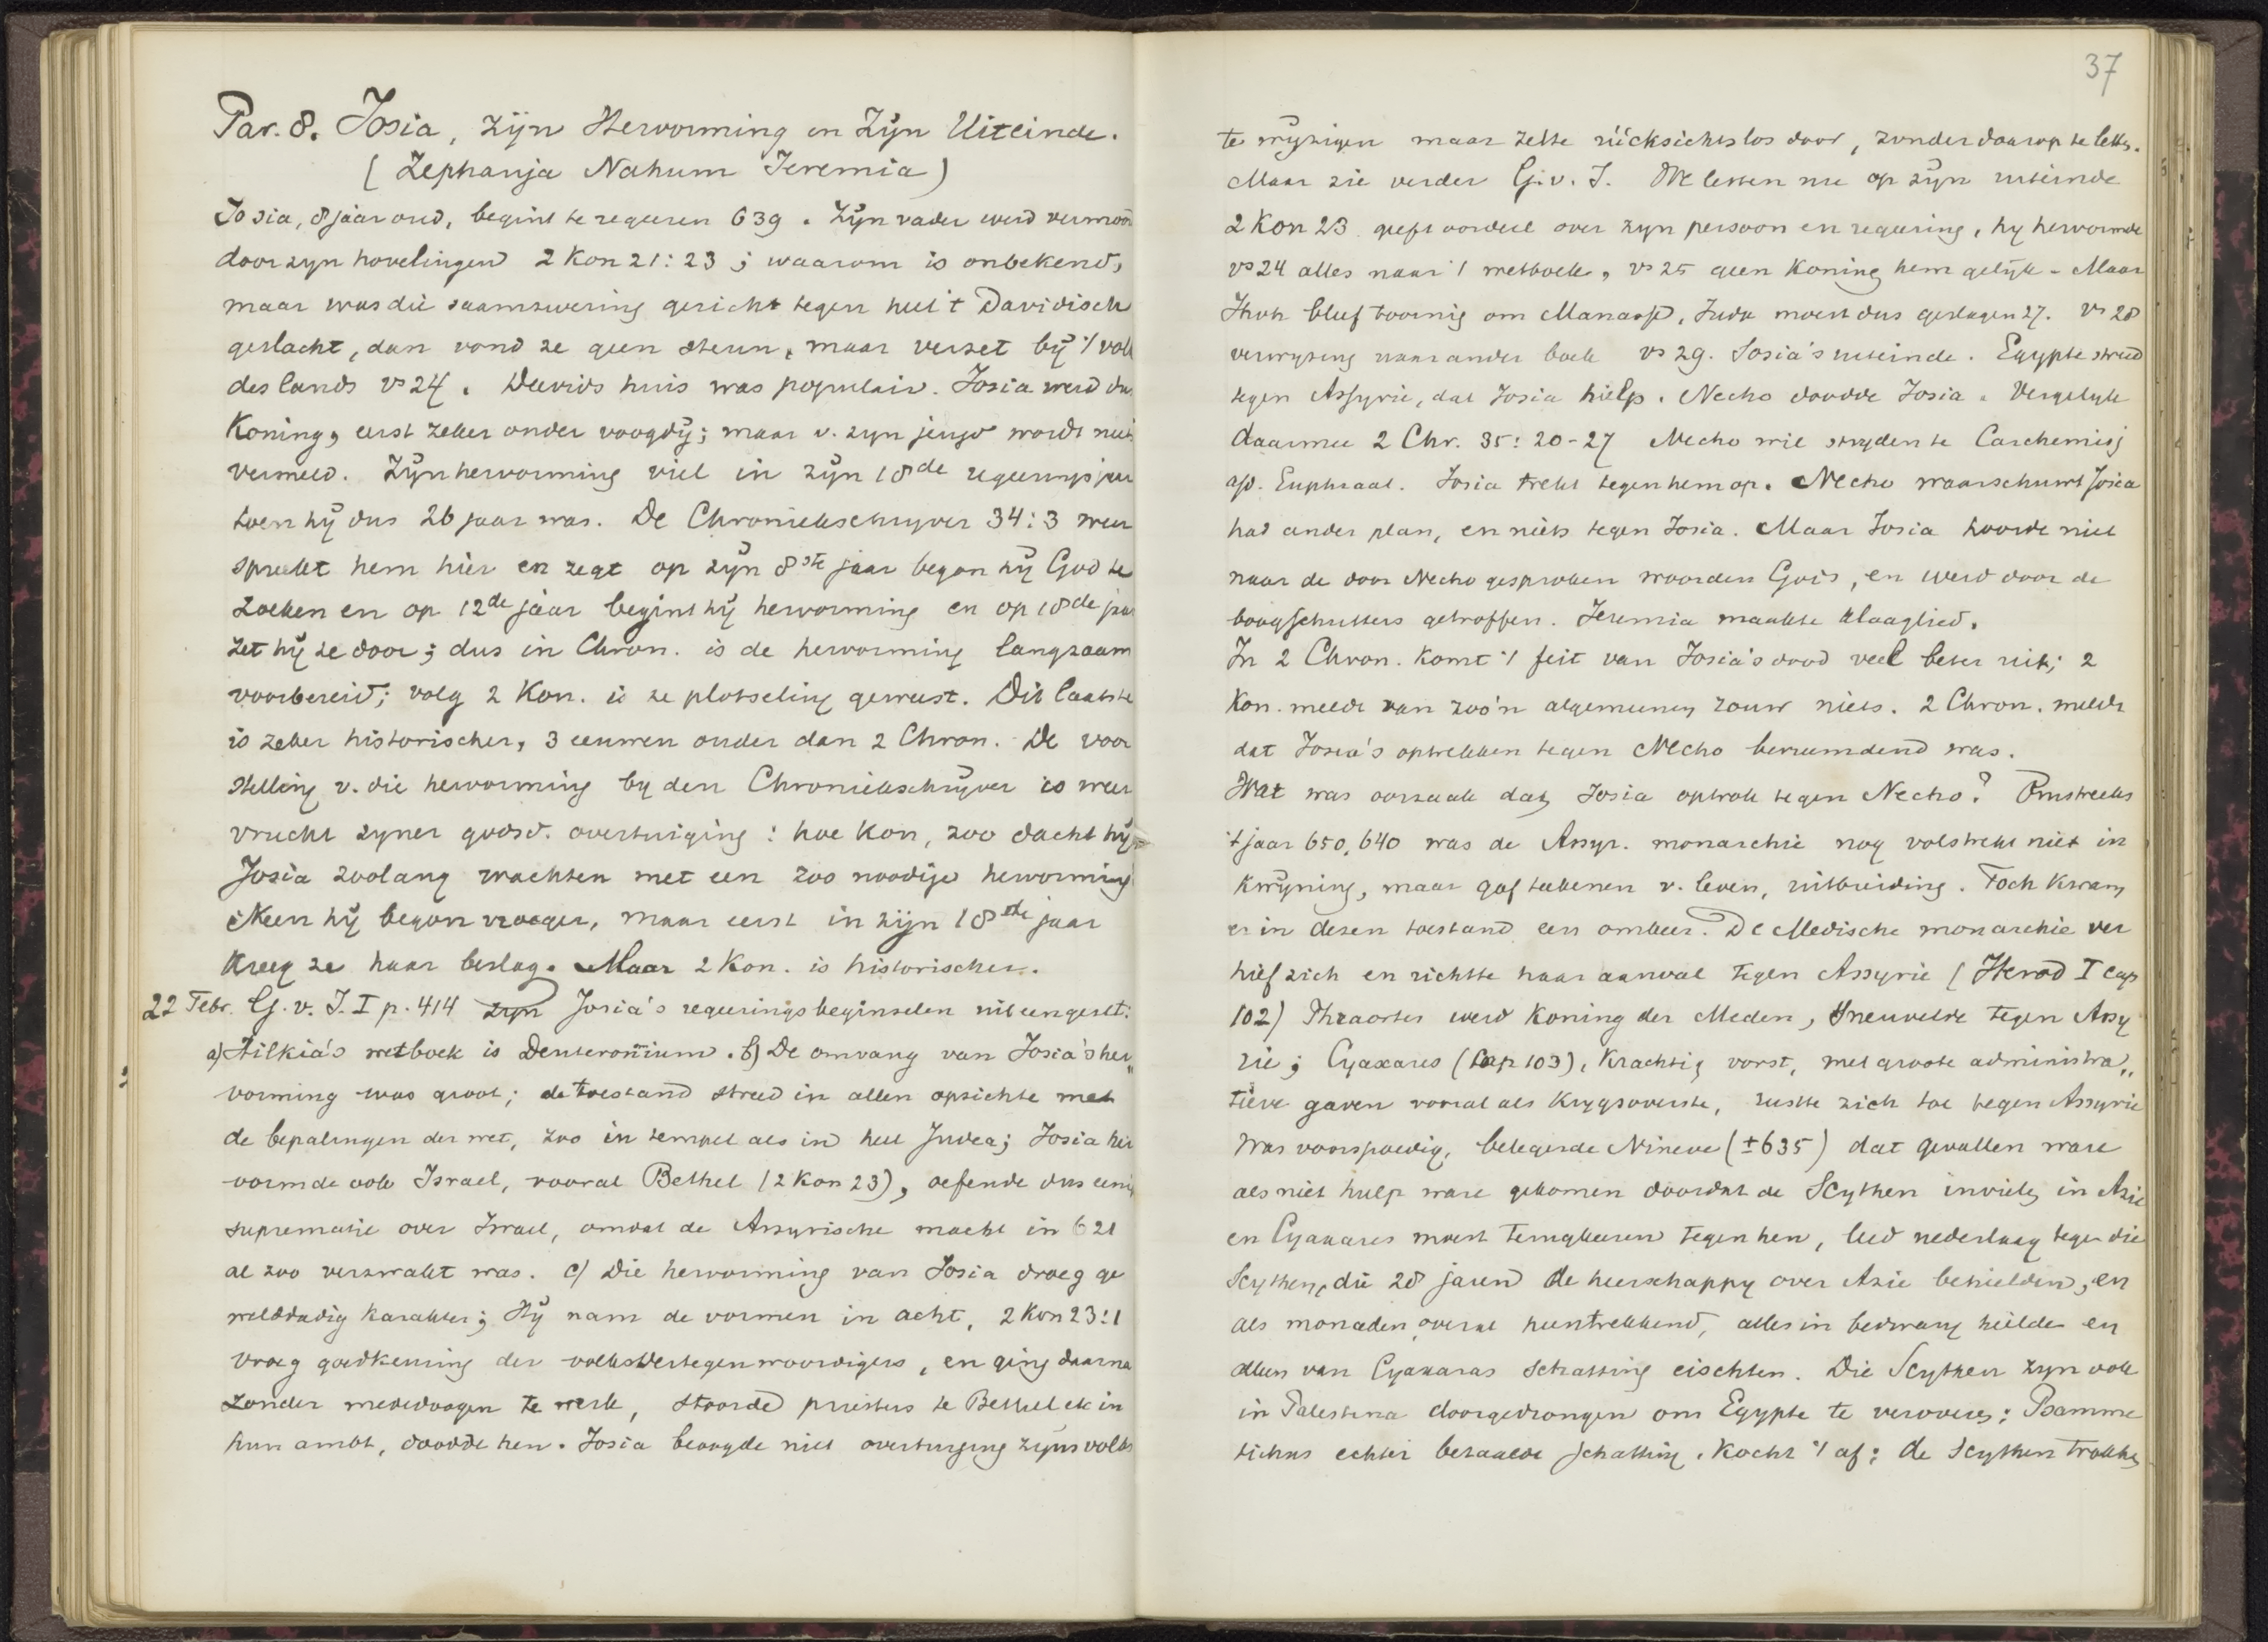 Par. 8. Josia, zijn Hervorming en Zijn Uiteinde.
(Zephanja Nahum Jeremia)
Josia, 8 jaar oud, begint te regeeren 639. Zijn vader werd vermoord
door zijn hovelingen 2 Kon 21:23; waarom is onbekend,
maar was die saamzwering gericht tegen heel 't Davidisch
geslacht, dan vond ze geen steun, maar verzet bij 't volk
des lands vs 24. Davids huis was populair. Josia werd dus
Koning, eerst zeker onder voogdij; maar v. zijn jeugd wordt niets
vermeld. Zijn hervorming viel in zijn 18de regeeringsjaar
toen hij dus 26 jaar was. De Chroniekschrijver 34:3 weer
spreekt hem hier en zegt op zijn 8ste jaar begon hij God te
zoeken en op 12de jaar begint hij hervorming en op 18de jaar
zet hij ze door; dus in Chron. is de hervorming langzaam
voorbereid; volg 2 Kon. is ze plotseling geweest. Dit laatste
is zeker historischer, 3 eeuwen ouder dan 2 Chron. De voor
stelling v. die hervorming bij den Chroniekschrijver is weer
vrucht zijner godsd. overtuiging: hoe kon, zoo dacht hij
Josia zoolang wachten met een zoo noodige hervorming
Neen hij begon vroeger, maar eerst in zijn 18de jaar
kreeg ze haar beslag. Maar 2 Kon. is historischer.
22 Febr. G. v. I. I p. 414 zijn Josia's regeeringsbeginselen uiteengezet:
a) Hilkia's wetboek is Deuteronomium. b) De omvang van Josia's her„
vorming was groot; de toestand streed in allen opzichte met
de bepalingen der wet, zoo in tempel als in heel Judea; Josia her
vormde ook Israel, vooral Bethel (2 Kon 23), oefende dus eenige
suprematie over Israel, omdat de Assyrische macht in 621
al zoo verzwakt was. c) Die hervorming van Josia droeg ge
welddadig karakter; Hij nam de vormen in acht, 2 Kon 23:1
vroeg goedkeuring der volksvertegenwoordigers, en ging daarna
zonder mededoogen te werk, stoorde priesters te Bethel etc in
hun ambt, doodde hen. Josia beoogde niet overtuiging zijns volks
37
te wijzigen maar zette rücksichtslos door, zonder daarop te letten.
Maar zie verder G. v. I. We letten nu op zijn uiteinde
2 Kon 23 geeft oordeel over zijn persoon en regeering, hij hervormde
vs 24 alles naar 't wetboek, vs 25 geen Koning hem gelijk - Maar
Jhvh bleef toornig om Manasse, Juda moest dus geslagen 27. vs 28
verwijzing naar ander boek vs 29. Josia's uiteinde. Egypte streed
tegen Assyrie, dat Josia hielp. Necho doodde Josia. Vergelijk
daarmee 2 Chr. 35:20-27 Necho wil strijden te Carchemis
a/d. Euphraat. Josia trekt tegen hem op. Necho waarschuwt Josia
had ander plan, en niets tegen Josia. Maar Josia hoorde niet
naar de door Necho gesproken woorden Gods, en werd door de
boogschutters getroffen. Jeremia maakte klaaglied.
In 2 Chron. komt 't feit van Josia's dood veel beter uit; 2
Kon. meldt van zoo'n algemeenen rouw niets. 2 Chron. meldt
dat Josia's optrekken tegen Necho bevreemdend was.
Wat was oorzaak dat Josia optrok tegen Necho? Omstreeks
't jaar 650, 640 was de Assyr. monarchie nog volstrekt niet in
kwijning, maar gaf teekenen v. leven, uitbreiding. Toch kwam
er in dezen toestand een omkeer. De Medische monarchie ver
hief zich en richtte haar aanval tegen Assyrie (Herod I cap
102) Phraortes werd Koning der Meden, sneuvelde tegen Assy
rie; Cyaxares (Cap 103), krachtig vorst, met groote administra„
tieve gaven vooral als krijgsoverste, rustte zich toe tegen Assyrie
was voorspoedig, belegerde Nineve (±635) dat gevallen ware
als niet hulp ware gekomen doordat de Scythen invielen in Azie
en Cyaxares moest terugkeeren tegen hen, leed nederlaag tegen die
Scythen, die 28 jaren de heerschappy over Azie behielden, en
als nomaden overal heentrekkend, alles in bedwang hielden en
alleen van Cyaxaras schatting eischten. Die Scythen zijn ook
in Palestina doorgedrongen om Egypte te veroveren; Psamme
tichus echter betaalde schatting, kocht 't af; de Scythen trokken